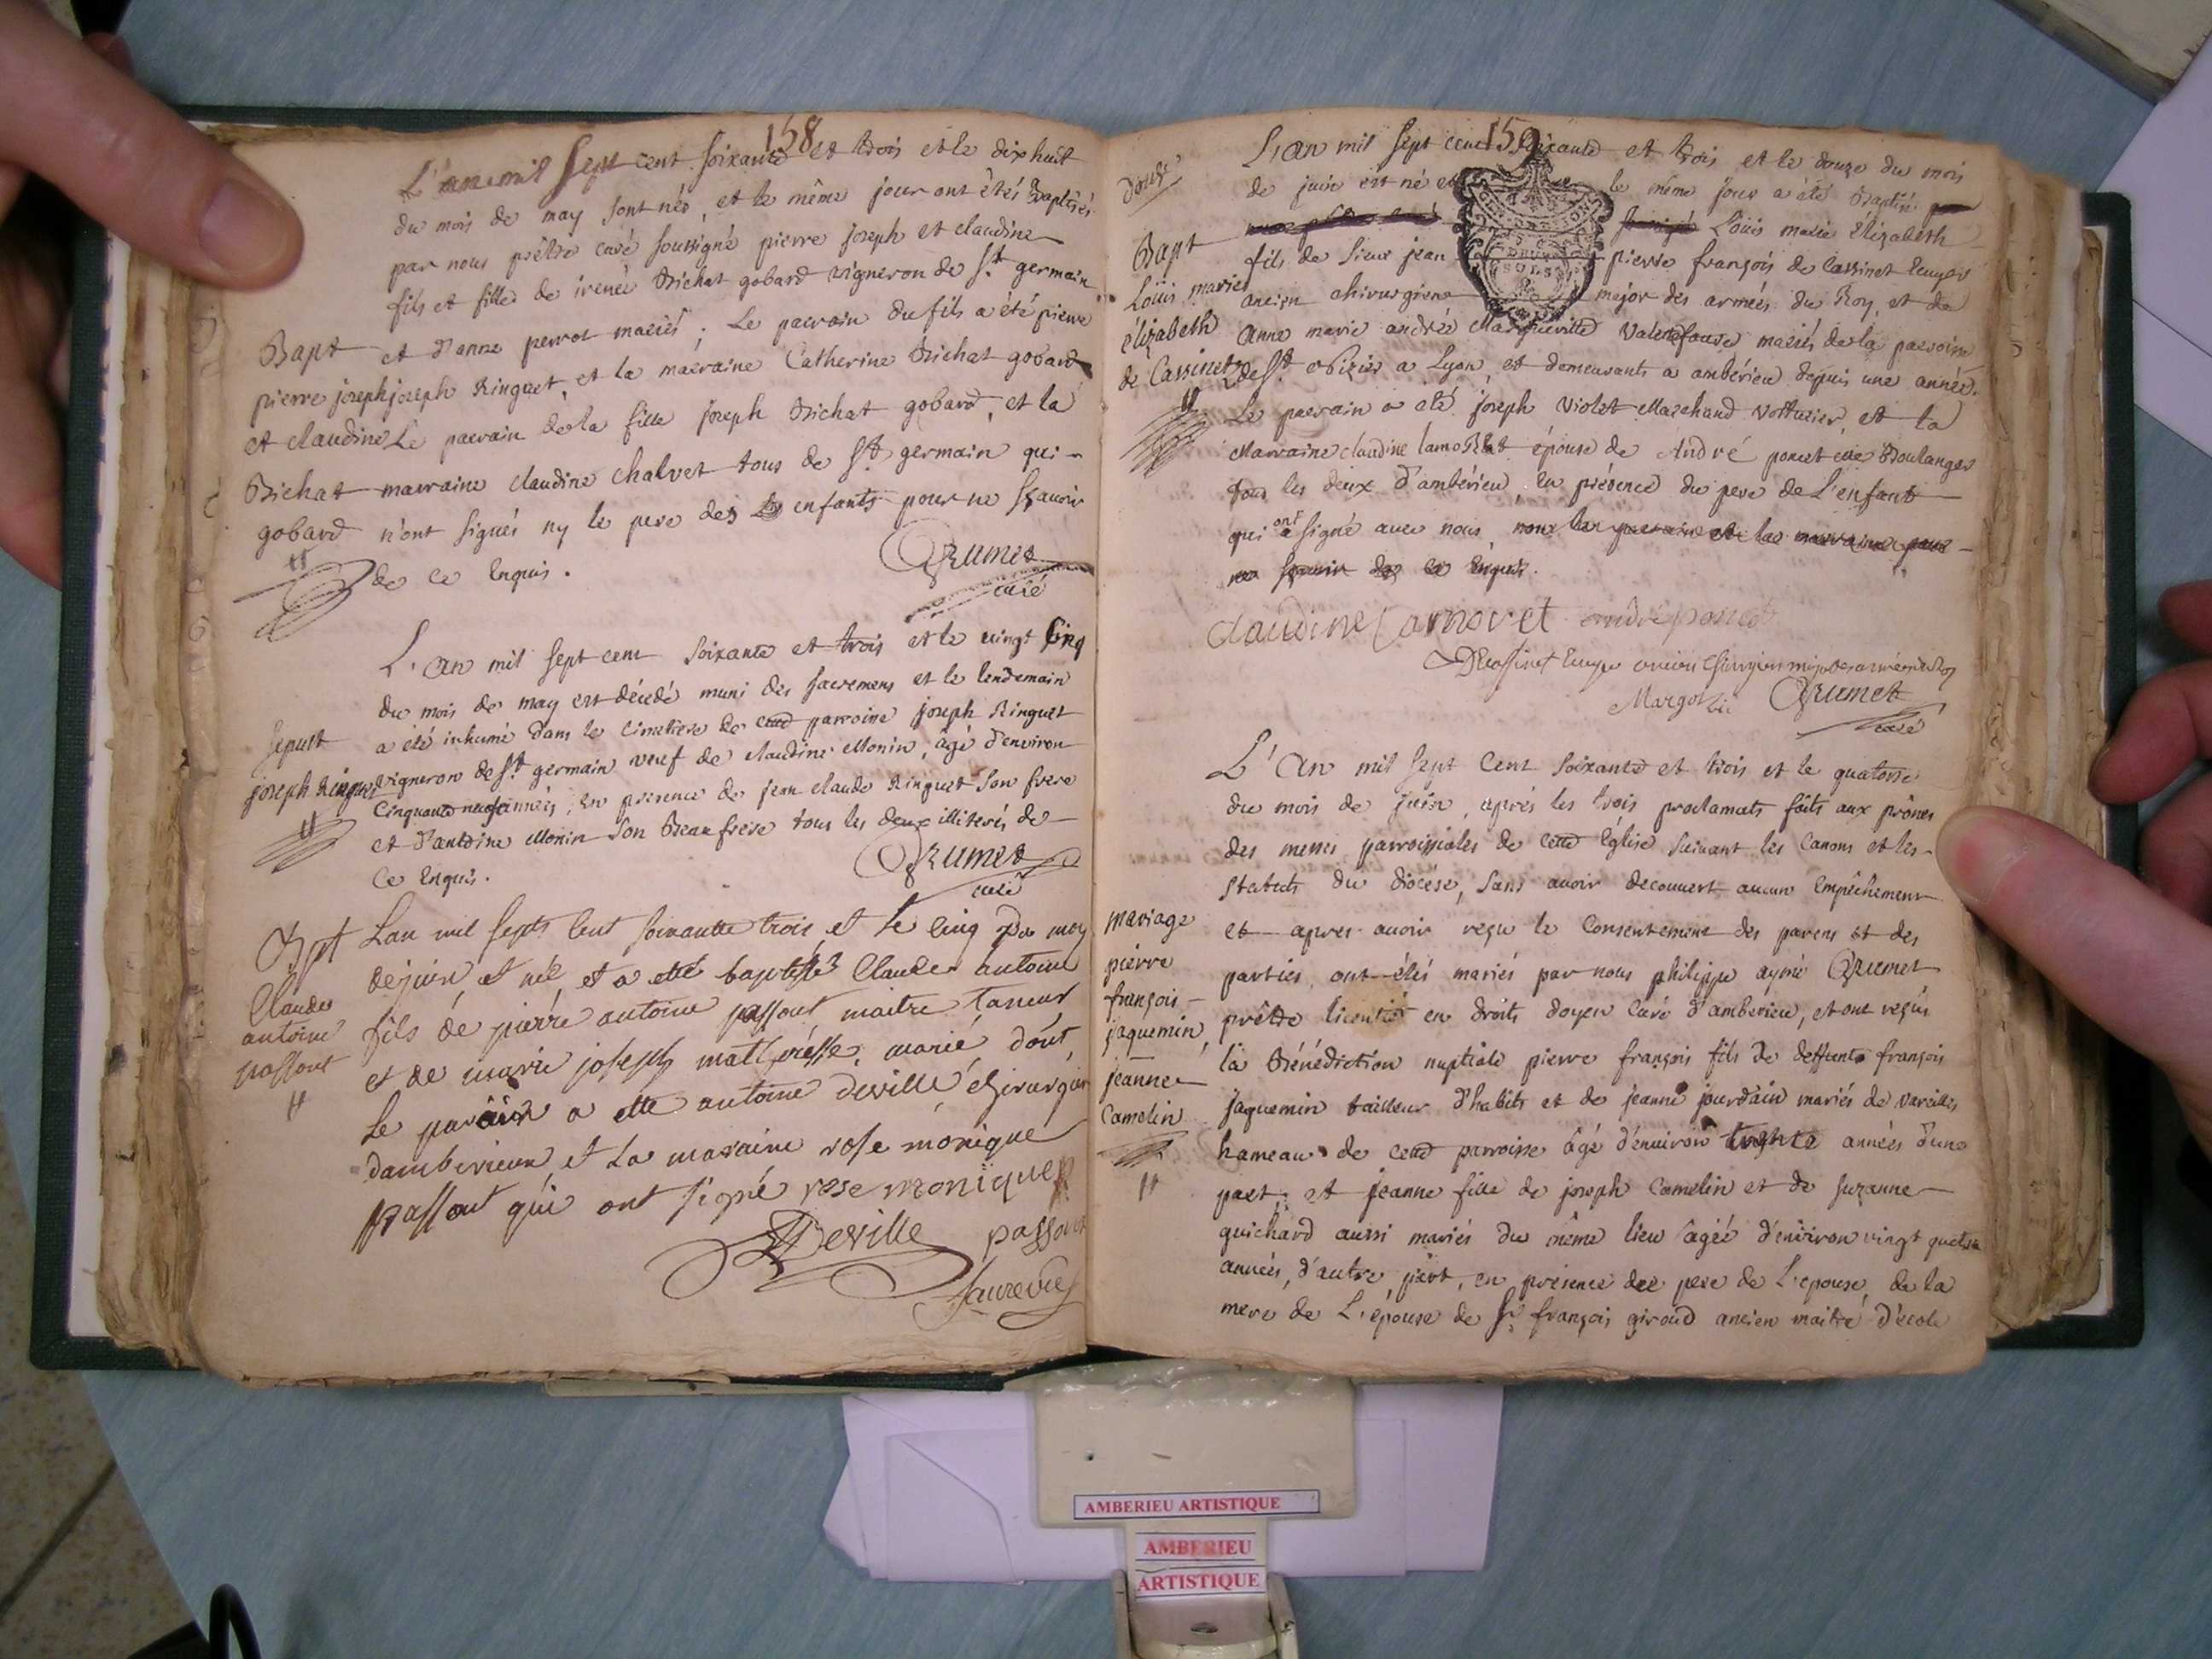 158
L'an mil sept cent soixante et trois et le dix huit
du mois de may sont nés, et le même jour ont étés Baptisés
par nous prêtre curé soussigné pierre joseph et claudine
fils et fille de irenée Bichat gobard vigneron de St germain
Bapt
pierre joseph
et claudine
Bichat
gobard
et d'anne perrot mariés; Le parrain du fils a été pierre
joseph Ringuet, et la marraine Catherine Bichat gobard
Le parrain de la fille joseph Bichat gobard, et la
marraine claudine chalvet tous de St germain qui
n'ont signés ny le pere des enfants pour ne sçavoir
de ce Enquis.
Grumet
curé
L'an mil sept cent soixante et trois et le vingt cinq
du mois de may est décédé muni des sacremens et le lendemain
a été inhumé dans le cimetiere de cette parroisse joseph Ringuet
sepult
joseph Ringuet
vigneron de St germain veuf de claudine Monin, âgé d'environ
Cinquante neuf années, en presence de jean claude Ringuet son frere
et d'antoine Monin son Beau frere tous les deux illiterés de
ce Enquis.
Grumet
curé
Bpt
Claude
antoine
passout
Lan mil septs cent soixante trois et le cinq du moy
de juin et né et a etté baptissé Claude antoine
fils de pierre antoine passout maitre taneur
et de marie joseph mariés, dont
Le parain a ette antoine deville chirurgien
damberieux et La maraine rose monique
passout qui ont signé rose monique
passout
Deville
159
L'an mil sept cent soixante et trois et le douze du mois
douze
de juin est né et le même jour a été Baptisé
Louis marie Élizabeth
DEUX
SOLS
Bapt
Louis marie
élizabeth
de Cassinet
fils de sieur jean pierre françois de Cassinet Ecuyer
ancien chirurgien major des armées du Roy, et de
anne marie andrée mariés de la parroisse
de St a Lyon, et demeurants a ambérieu depuis une année.
Le parrain a été joseph violet Marchand voiturier, et la
Marraine claudine épouse de André poncet Boulanger
tous les deux d'ambérieu, en présence du pere de L'enfant
qui ont signé avec nous
claudine andré poncet
Grumet
curé
L'An mil sept Cent soixante et trois et le quatorze
du mois de juin, après les trois proclamats faits aux prônes
des messes parroissiales de cette Église suivant les Canons et les
statuts du diocèse, sans avoir decouvert aucun Empêchement
mariage
pierre
françois
jaquemin,
jeanne
Camelin
et apres avoir reçu le Consentement des parens et des
parties, ont étés mariés par nous philippe aymé Grumet
prêtre licentié en droits doyen curé d'amberieu, et ont reçus
la Bénédiction nuptiale pierre françois fils de deffunt françois
jaquemin tailleur d'habits et de jeanne jourdain mariés de vareilles
hameau de cette parroisse âgé d'environ trente années d'une
part; et jeanne fille de joseph Camelin et de suzanne
guichard aussi mariés du même lieu âgée d'environ vingt quatre
années, d'autre part, en présence des pere de L'epouse, de la
mere de L'épouse de Sr françois giroud ancien maitre d'école
AMBERIEU ARTISTIQUE
AMBERIEU
ARTISTIQUE